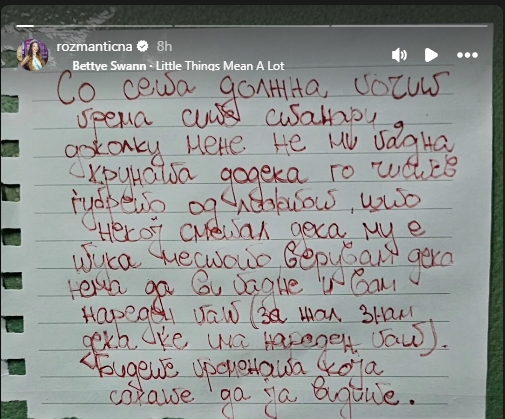 rozmanticna 8h
Bettye Swann · Little Things Mean A Lot
Со сета должна почит
према сите станари
доколку мене не ми падна
круната додека го чистев
ѓубрето од лифтот, што
некој сметал дека му е
тука местото верувам дека
нема да ви падне и вам
нареден пат (за жал знам
дека ќе има нареден пат).
Бидете промената која
сакате да ја видите.